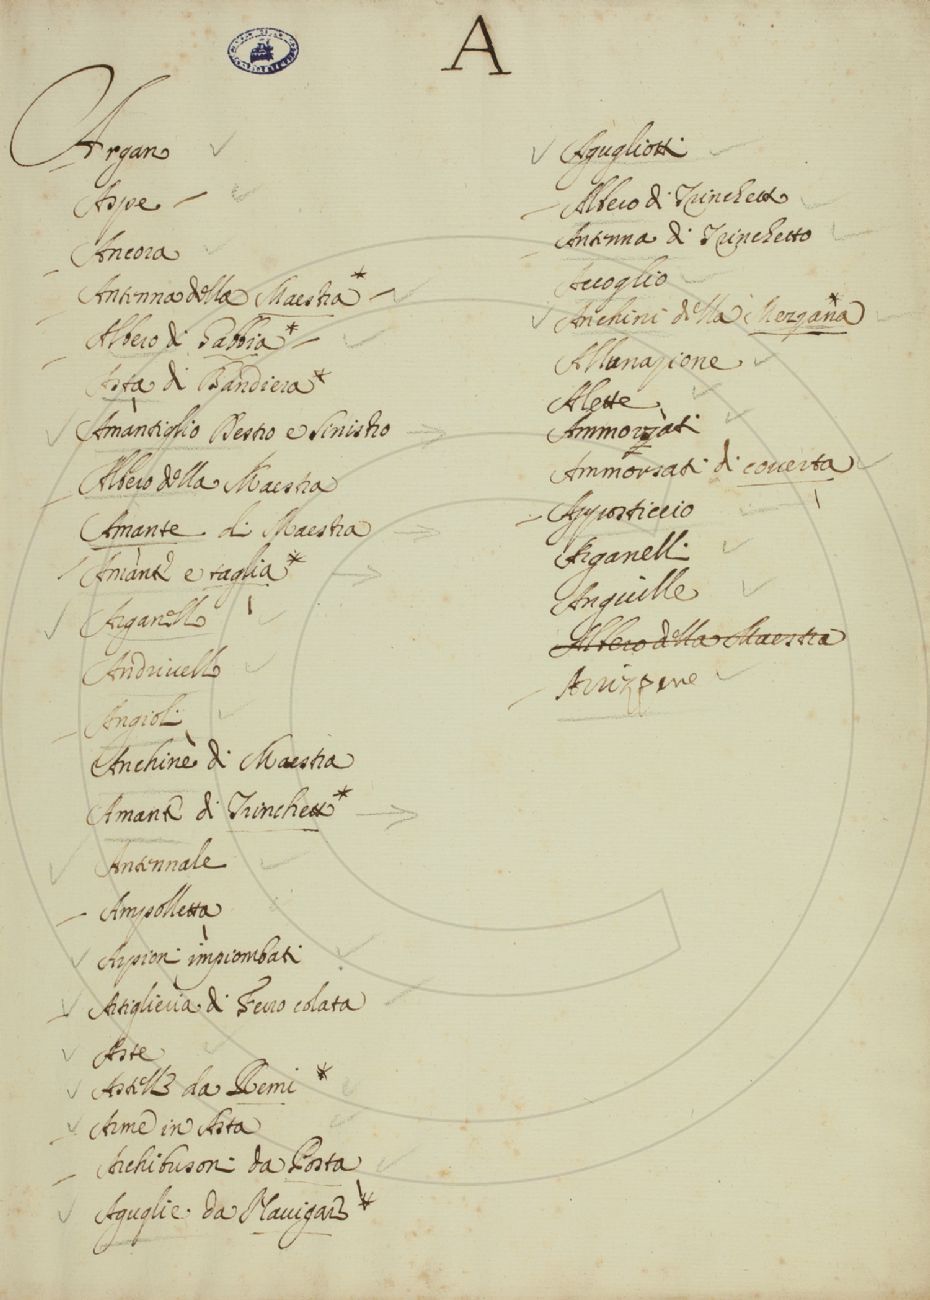 A
Argano
Aspe
Ancora
Antenna della Maestra *
Albero di Gabbia *
Asta di Bandiera *
Amantiglio Destro e Sinistro
Albero della Maestra
Amante di Maestra
Amante e taglia *
Arganello
Andrivello
Angioli
Anchine di Maestra
Amante di Trinchetto *
Antennale
Ampolletta
Arpioni impiombati
Artiglieria di Ferro colata
Aste
Astelle da Remi *
Arme in Asta
Archibusoni da Posta
Aguglie da Navigare *
Agugliotti
Albero di Trinchetto
Antenna di Trinchetto
Accoglio
Anchini della Mezzana *
Allunazione
Alette
Ammorzati
Ammorsati di coverta
Apposticcio
Arganelli
Anguille
Albero della Maestra